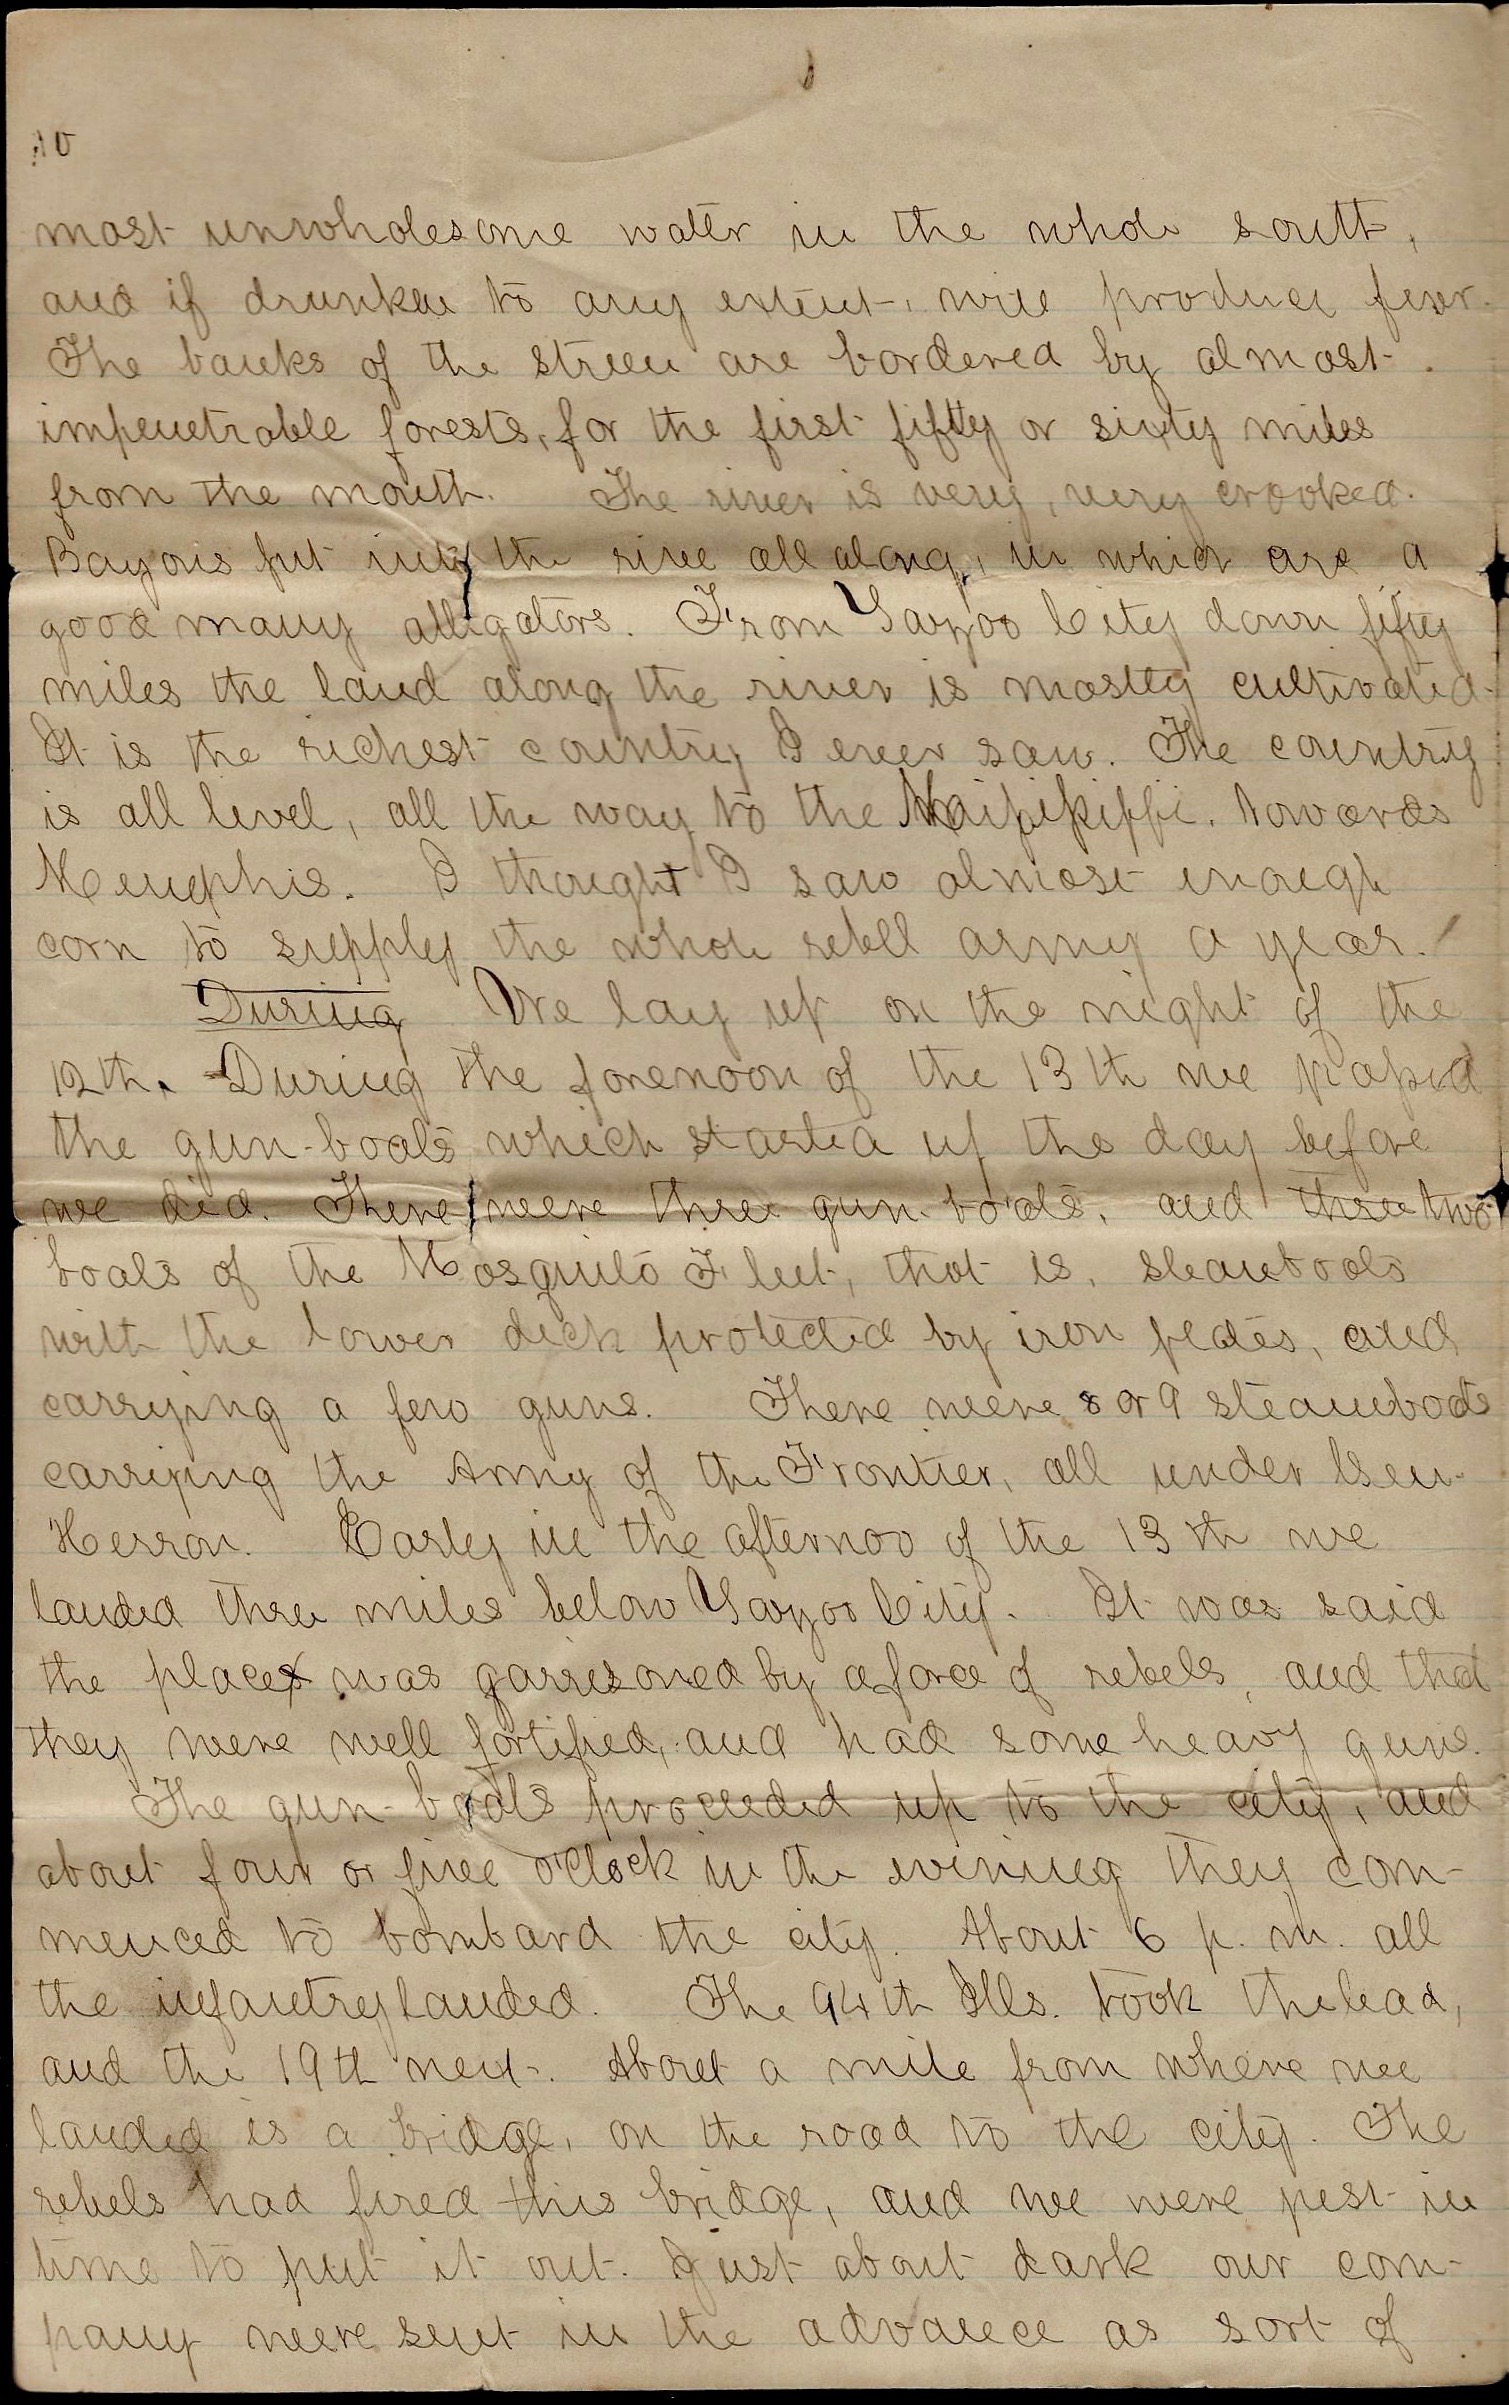 10
most unwholesome water in the whole south,
and if drunken to any extent, will produce fever.
The banks of the stream are bordered by almost
impenetrable forests, for the first fifty or sixty miles
from the mouth. The river is very, very crooked.
Bayous put into the river all along, in which are a
good many alligators. From Yazoo City down fifty
miles the land along the river is mostly cultivated.
It is the richest country I ever saw. The country
is all level, all the way to the Mississippi, towards
Memphis. I thought I saw almost enough
corn to supply the whole rebell army a year.
During We lay up on the night of the
12th. During the forenoon of the 13th we passed
the gun-boats which started up the day before
we did. There were three gun-boats, and three two
boats of the Mosquito Fleet, that is, steamboats
with the lower deck protected by iron plates, and
carrying a few guns. There were 8 or 9 steamboats
carrying the Army of the Frontier, all under Gen.
Herron. Early in the afternoo of the 13th we
landed three miles below Yazoo City. It was said
the place was garrisoned by a force of rebels, and that
they were well fortified, and had some heavy guns.
The gun-boats proceeded up to the city, and
about four or five o'clock in the evening they com-
menced to bombard the city. About 6 p. m. all
the infantry landed. The 94th Ills. took the lead,
and the 19th next. About a mile from where we
landed is a bridge, on the road to the city. The
rebels had fired this bridge, and we were just in
time to put it out. Just about dark our com-
pany were sent in the advance as sort of